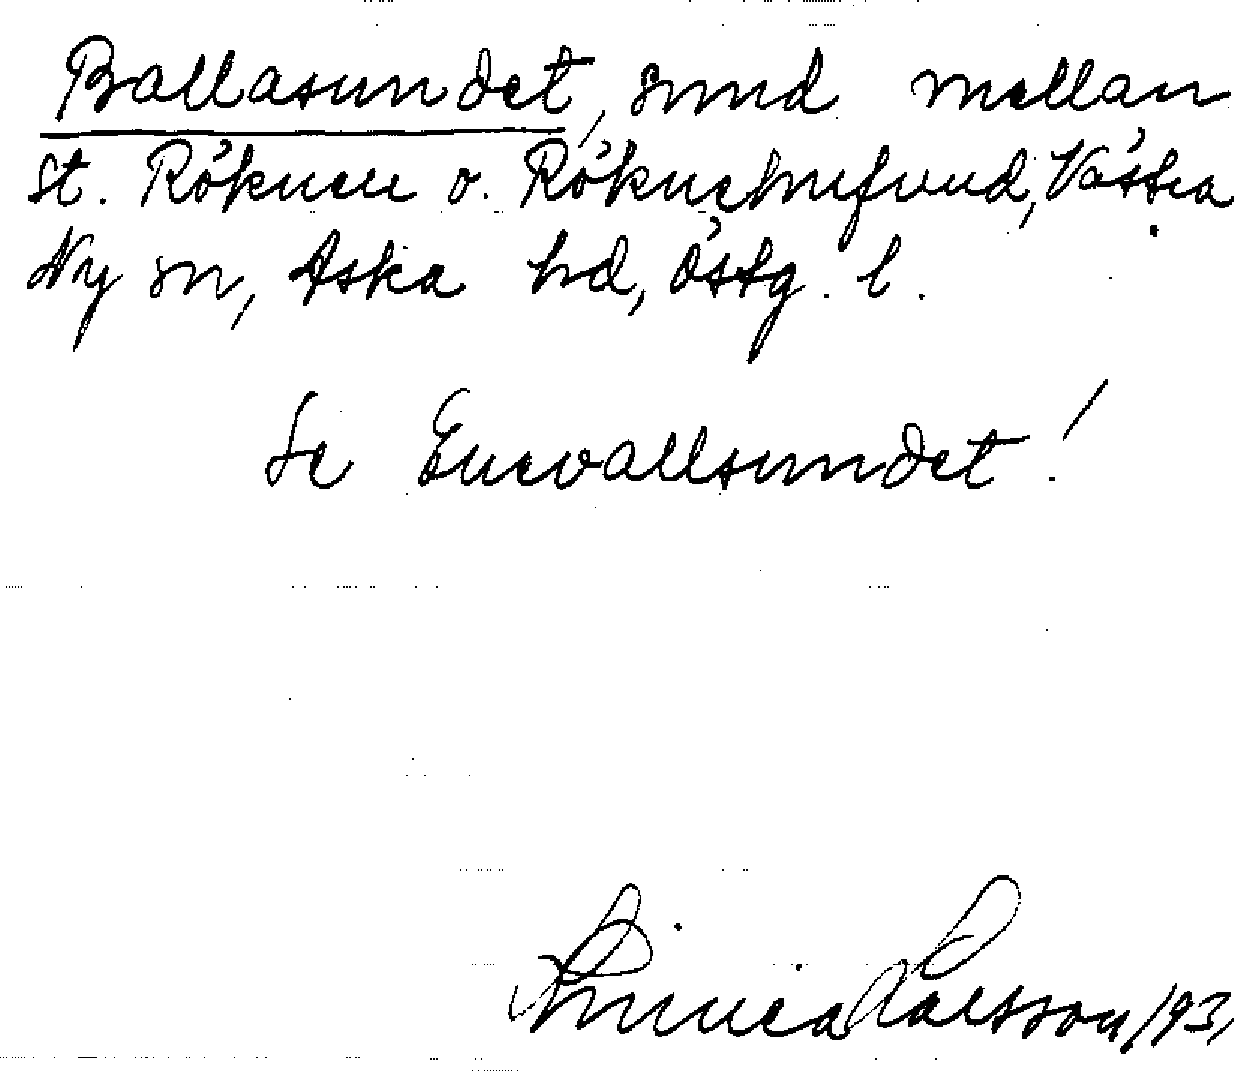 Ballasundet, sund mellan
St. Röknen o. Röknehufvud, Västra
Ny sn, Aska hd, Östg. l.
Se Enevallsundet!
Larsson 193